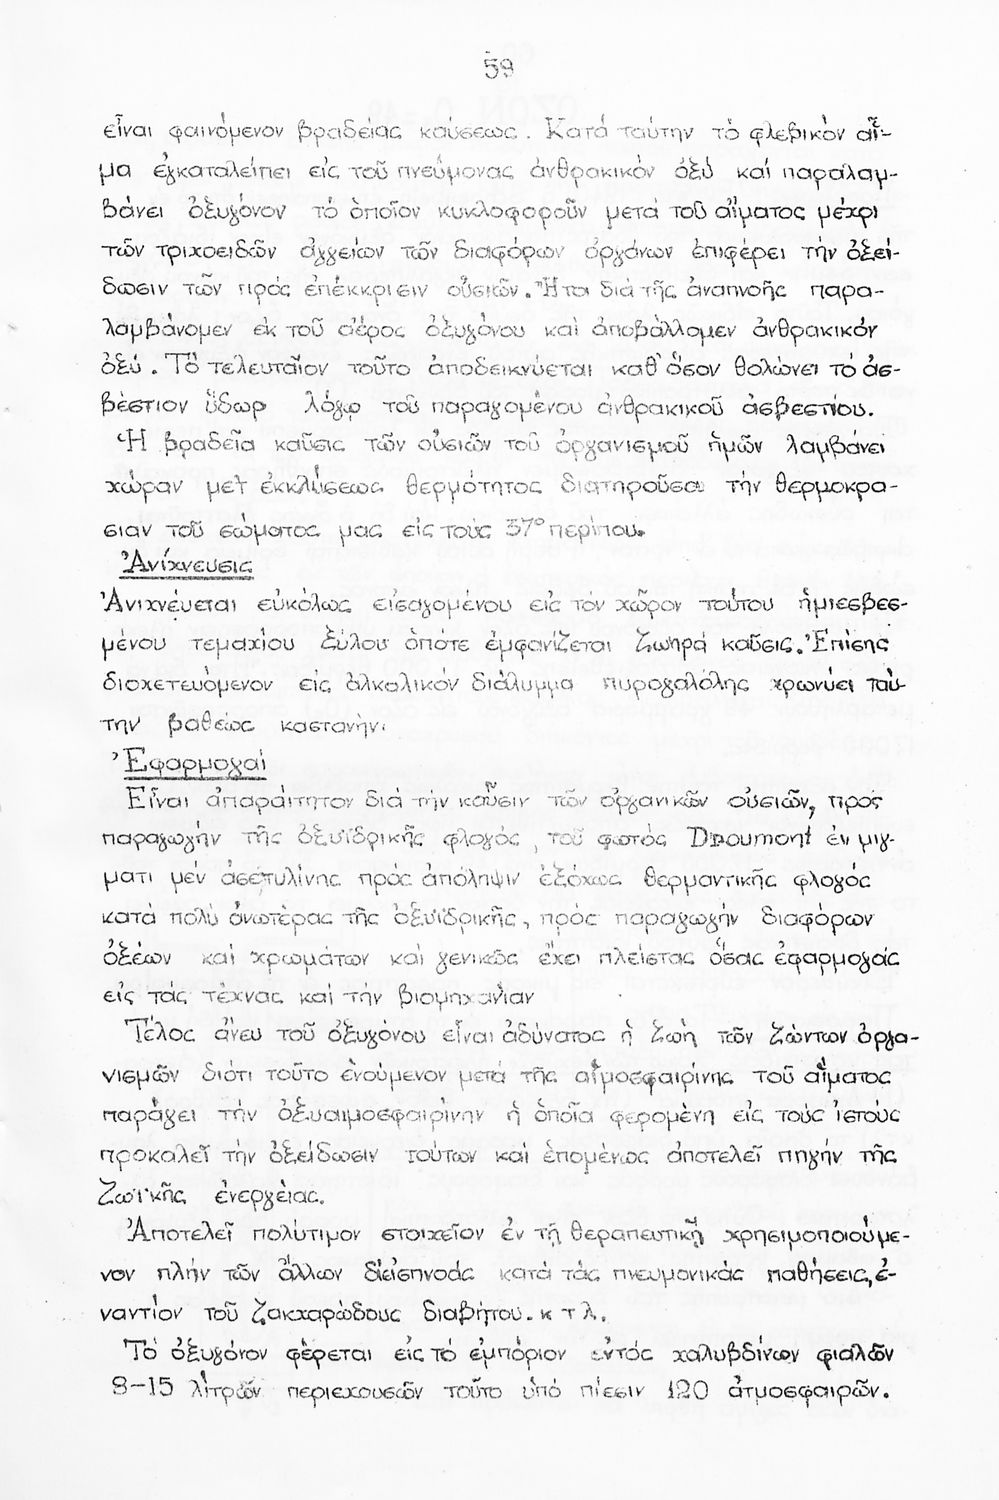 59
εἶναι φαινόμενον βραδείας καύσεως. Κατά ταύτην τό φλεβικόν αἷ-
μα ἐγκαταλείπει εἰς τοῦ πνεύμονας ἀνθρακικόν ὀξύ καί παραλαμ-
βάνει ὀξυγόνον τό ὁποῖον κυκλοφοροῦν μετά τοῦ αἵματος μέχρι
τῶν τριχοειδῶν ἀγγείων τῶν διαφόρων ὀργάνων ἐπιφέρει τήν ὀξεί-
δωσιν τῶν πρός ἐπέκκρισιν οὐσιῶν. Ἤτοι διά τῆς ἀναπνοῆς παρα-
λαμβάνομεν ἐκ τοῦ ἀέρος ὀξυγόνου καί ἀποβάλλομεν ἀνθρακικόν
ὀξύ. Τό τελευταῖον τοῦτο ἀποδεικνύεται καθ' ὅσον θολώνει τό ἀσ-
βέστιον ὕδωρ λόγῳ τοῦ παραγομένου ἀνθρακικοῦ ἀσβεστίου.
Ἡ βραδεῖα καῦσις τῶν οὐσιῶν τοῦ ὀργανισμοῦ ἡμῶν λαμβάνει
χώραν μετ ἐκκλύσεως θερμότητος διατηροῦσα τήν θερμοκρα-
σιαν τοῦ σώματος μας εἰς τούς 37° περίπου.
Ἀνίχνευσις
Ἀνιχνέυεται εὐκόλως εἰσαγομένου εἰς τόν χῶρον τούτου ἡμιεσβεσ-
μένου τεμαχίου ξύλου ὁπότε ἐμφανίζεται ζωηρά καῦσις. Ἐπίσης
διοχετευόμενον εἰς ἀλκαλικόν διάλυμμα πυρογαλόλης χρωνύει ταύ-
την βαθέως καστανήν.
Ἐφαρμογαί
Εἶναι ἀπαράιτητον διά τήν καῦσιν τῶν ὀργανικῶν οὐσιῶν, πρός
παραγωγήν τῆς ὀξυϊδρικῆς φλογός, τοῦ φωτός Droumont ἐν μιγ-
ματι μέν ἀσετυλίνης πρός ἀπόληψιν ἐξόχως θερμαντικῆς φλογός
κατά πολύ ἀνωτέρας τῆς ὀξυϊδρικῆς, πρός παραγωγήν διαφόρων
ὀξέων καί χρωμάτων καί γενικῶς ἔχει πλείστας ὅσας ἐφαρμογάς
εἰς τάς τέχνας καί τήν βιομηχανίαν
Τέλος ἄνευ τοῦ ὀξυγόνου εἶναι ἀδύνατος ἡ ζωή τῶν ζώντων ὀργα-
νισμῶν διότι τοῦτο ἑνούμενον μετά τῆς αἱμοσφαιρίνης τοῦ αἵματος
παράγει τήν ὀξυαιμοσφαιρίνην ἡ ὁποῖα φερομένη εἰς τούς ἱστούς
προκαλεῖ τήν ὀξείδωσιν τούτων καί ἑπομένως ἀποτελεῖ πηγήν τῆς
ζωτικῆς ἐνεργείας.
Ἀποτελεῖ πολύτιμον στοιχεῖον ἐν τῇ θεραπευτικῇ χρησιμοποιούμε-
νον πλήν τῶν ἄλλων δἰεἰσπνοάς κατά τάς πνευμονικάς παθήσεις, ἐ-
ναντίον τοῦ ζακχαρώδους διαβήτου. κ τ λ.
Τό ὀξυγόνον φέρεται εἰς τό ἐμπόριον ἐντός χαλυβδίνων φιαλῶν
8-15 λίτρῶν περιεχουσῶν τοῦτο ὑπό πίεσιν 120 ἀτμοσφαιρῶν.